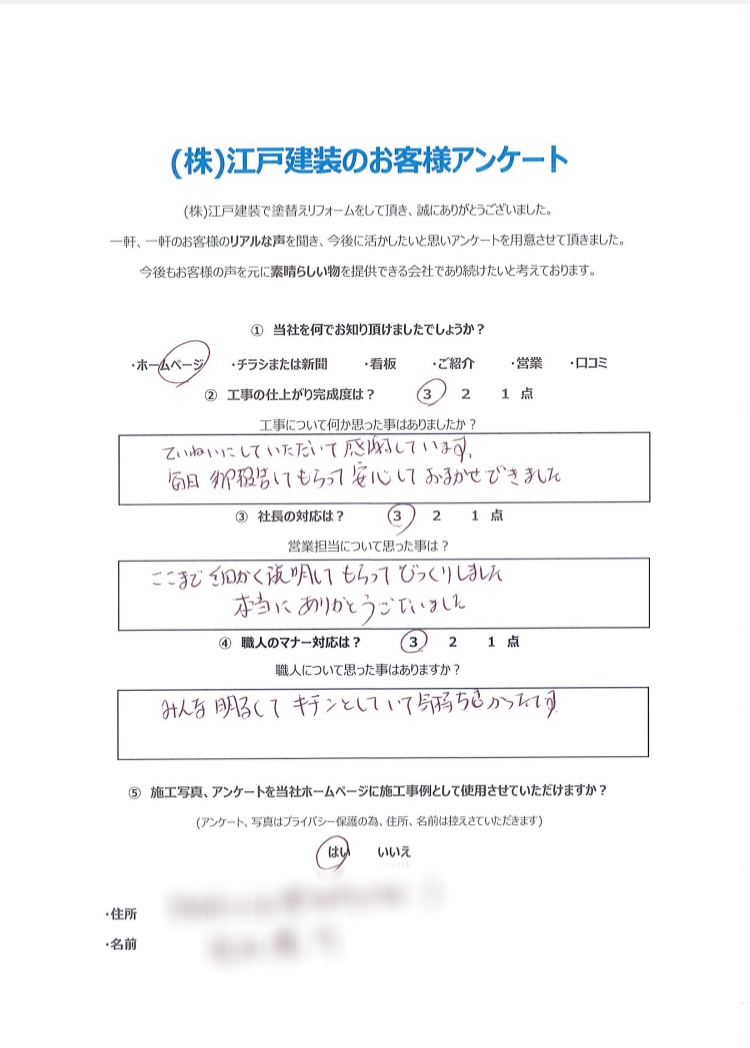 (株)江戸建装のお客様アンケート
(株)江戸建装で塗替えリフォームをして頂き、誠にありがとうございました。
一軒、一軒のお客様のリアルな声を聞き、今後に活かしたいと思いアンケートを用意させて頂きました。
今後もお客様の声を元に素晴らしい物を提供できる会社であり続けたいと考えております。
① 当社を何でお知り頂けましたでしょうか？
・ホームページ ・チラシまたは新聞 ・看板 ・ご紹介 ・営業 ・口コミ
② 工事の仕上がり完成度は？ 3 2 1 点
工事について何か思った事はありましたか？
ていねいにしていただいて感謝しています。
毎日 御報告してもらって安心しておまかせできました
③ 社長の対応は？ 3 2 1 点
営業担当について思った事は？
ここまで細かく説明してもらってびっくりしました
本当にありがとうございました
④ 職人のマナー対応は？ 3 2 1 点
職人について思った事はありますか？
みんな明るくてキチンとしていて気持ち良かったです
⑤ 施工写真、アンケートを当社ホームページに施工事例として使用させていただけますか？
(アンケート、写真はプライバシー保護の為、住所、名前は控えさていただきます)
はい いいえ
・住所
・名前